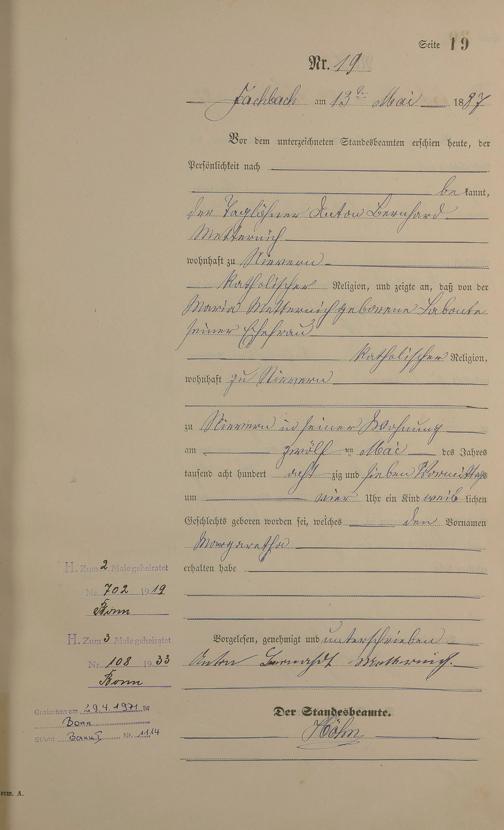 Seite 19
Nr. 19
Fachbach am 13ten Mai 1887
Vor dem unterzeichneten Standesbeamten erschien heute, der
Persönlichkeit nach
bekannt,
der Taglöhner Anton Bernhard
Metternich
wohnhaft zu Nievern
katholischer Religion, und zeigte an, daß von der
Maria Metternich geborene Labonte
seiner Ehefrau
katholischer Religion,
wohnhaft zu Nievern
zu Nievern in seiner Wohnung
am zwölf ten Mai des Jahres
tausend acht hundert acht zig und sieben Vormittags
um vier Uhr ein Kind weiblichen
Geschlechts geboren worden sei, welches den Vornamen
Margaretha
erhalten habe
H. Zum 2 Male geheiratet
Nr. 702 1919
Bonn
Vorgelesen, genehmigt und unterschrieben
Anton Bernahdt Metternich.
H. Zum 3 Male geheiratet
Nr. 108 1933
Bonn
Gestorben am 29.4.1971 in
Bonn
StAmt Bonn I Nr. 1114
Der Standesbeamte.
Höhn